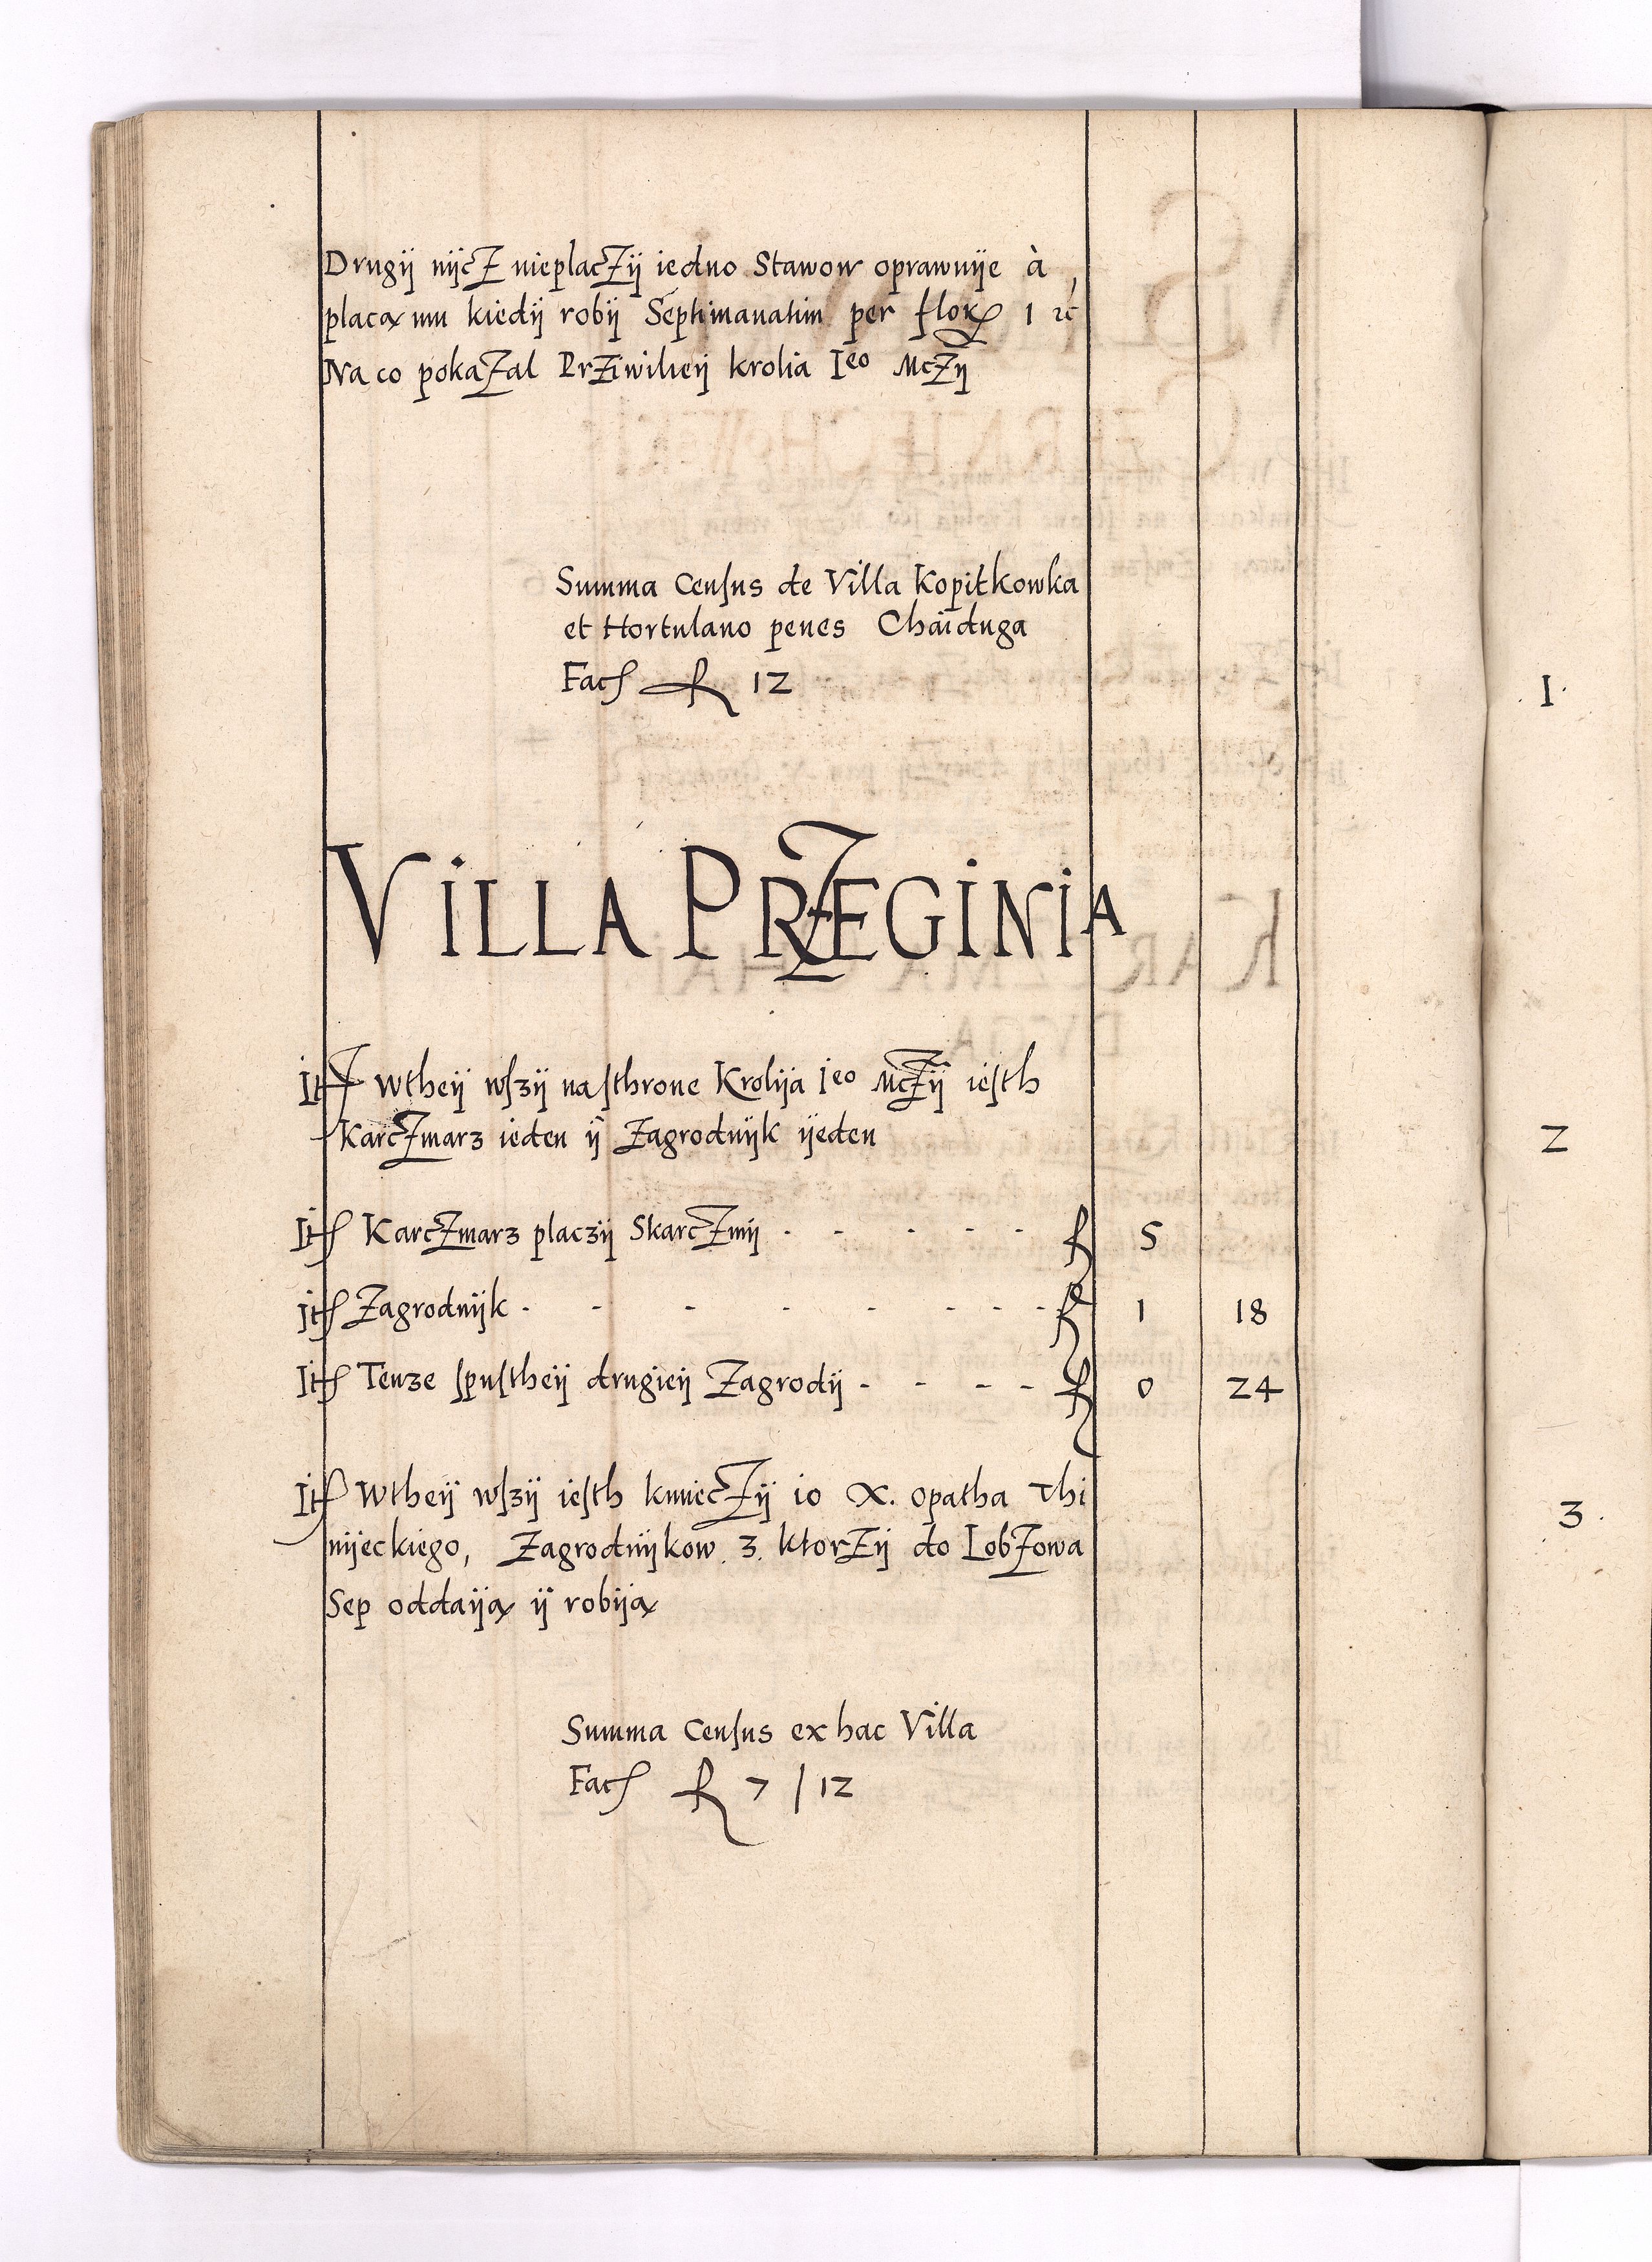 Drugij nijcZ nieplacZij iedno Stawow oprawuije à
placą mu kiedij robij Septimanatim per flor 1 ic
Na co pokaZal PrZiwilieij krolia Ieo McZij
Summa Census de Villa Kopitkowka
et Hortulano penes Chaiduga
Fac fl 12
VILLA PRZEGINIA
It Wtheij wſzij na ſthrone Krolija Ieo McZij ieſth
KarcZmarz ieden ij Zagrodnijk ijeden
It KarcZmarz placzij SkarcZmij - - - - - - fl 5
It Zagrodnijk - - - - - - - - - fl 1 18
It Tenze ſpuſtheij drugieij Zagrodij - - - - fl 0 24
It Wtheij wſzij ieſth kmiecZij io X. opatha Thi
nijeckiego, Zagrodnijkow. 3. ktorZij do LobZowa
Sep oddaiją ij robiją
Summa Census ex hac Villa
Fac fl 7 / 12
1.
2
3.